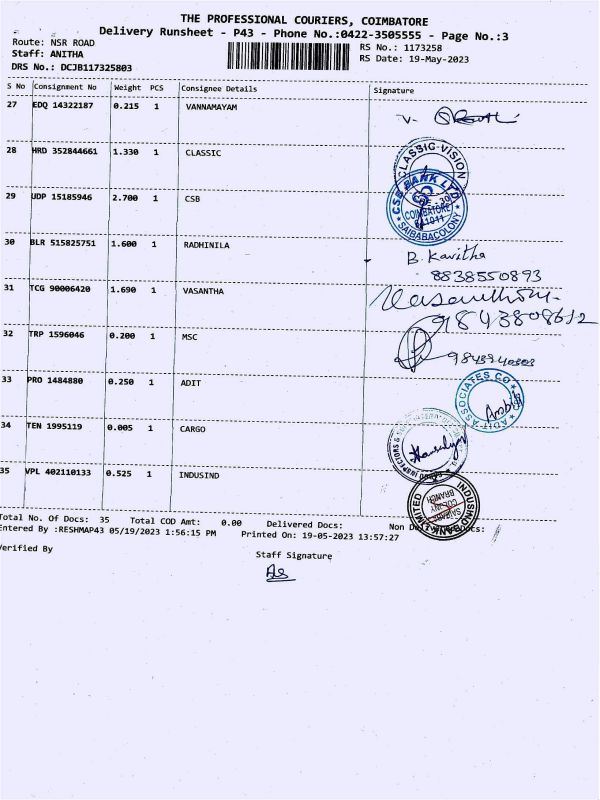 THE PROFESSIONAL COURIERS, COIMBATORE
Delivery Runsheet - P43 - Phone No.:0422-3505555 - Page No.:3
Route: NSR ROAD
RS No.: 1173258
Staff: ANITHA
RS Date: 19-May-2023
DRS No.: DCJB117325803
S No Consignment No Weight PCS Consignee Details Signature
27 EDQ 14322187 0.215 1 VANNAMAYAM
V.
28 HRD 352844661 1.330 1 CLASSIC
CLASSIC-VISION
29 UDP 15185946 2.700 1 CSB
CSB BANK LTD
COIMBATORE
SAIBABACOLONY
30 BLR 515825751 1.600 1 RADHINILA
B. Kavitha
8838550893
31 TCG 90006420 1.690 1 VASANTHA
9843808612
32 TRP 1596046 0.200 1 MSC
33 PRO 1484880 0.250 1 ADIT
ADIT-ASSOCIATES CO
34 TEN 1995119 0.005 1 CARGO
35 VPL 402110133 0.525 1 INDUSIND
INDUSIND BANK LIMITED
BRANCH
Total No. Of Docs: 35 Total COD Amt: 0.00 Delivered Docs: Non Docs:
Entered By :RESHMAP43 05/19/2023 1:56:15 PM Printed On: 19-05-2023 13:57:27
Verified By
Staff Signature